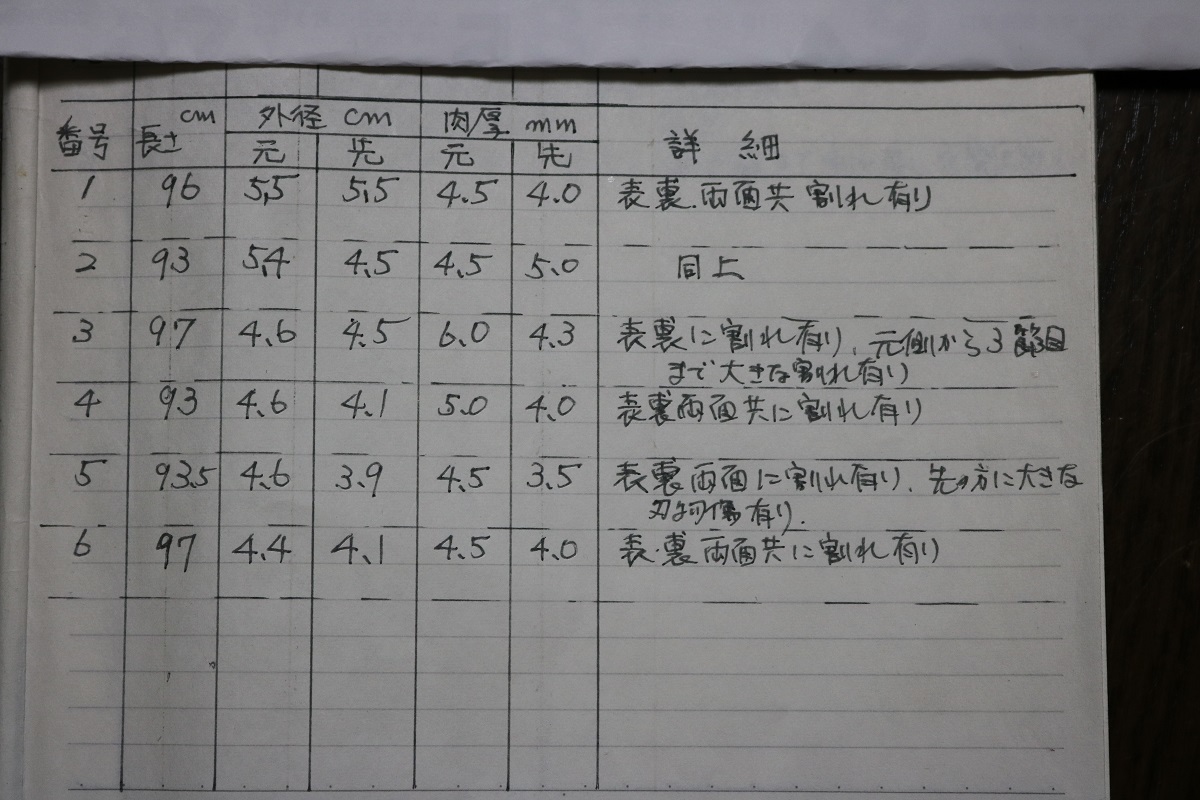 番号 長さ cm 外径 cm 肉厚 mm 詳細
元 先 元 先
1 96 5.5 5.5 4.5 4.0 表裏.両面共割れ有り
2 93 5.4 4.5 4.5 5.0 同上
3 97 4.6 4.5 6.0 4.3 表裏に割れ有り、元側から3節目
まで大きな割れ有り
4 93 4.6 4.1 5.0 4.0 表裏両面共に割れ有り
5 93.5 4.6 3.9 4.5 3.5 表裏両面に割れ有り、先の方に大きな
刃物傷有り.
6 97 4.4 4.1 4.5 4.0 表.裏両面共に割れ有り